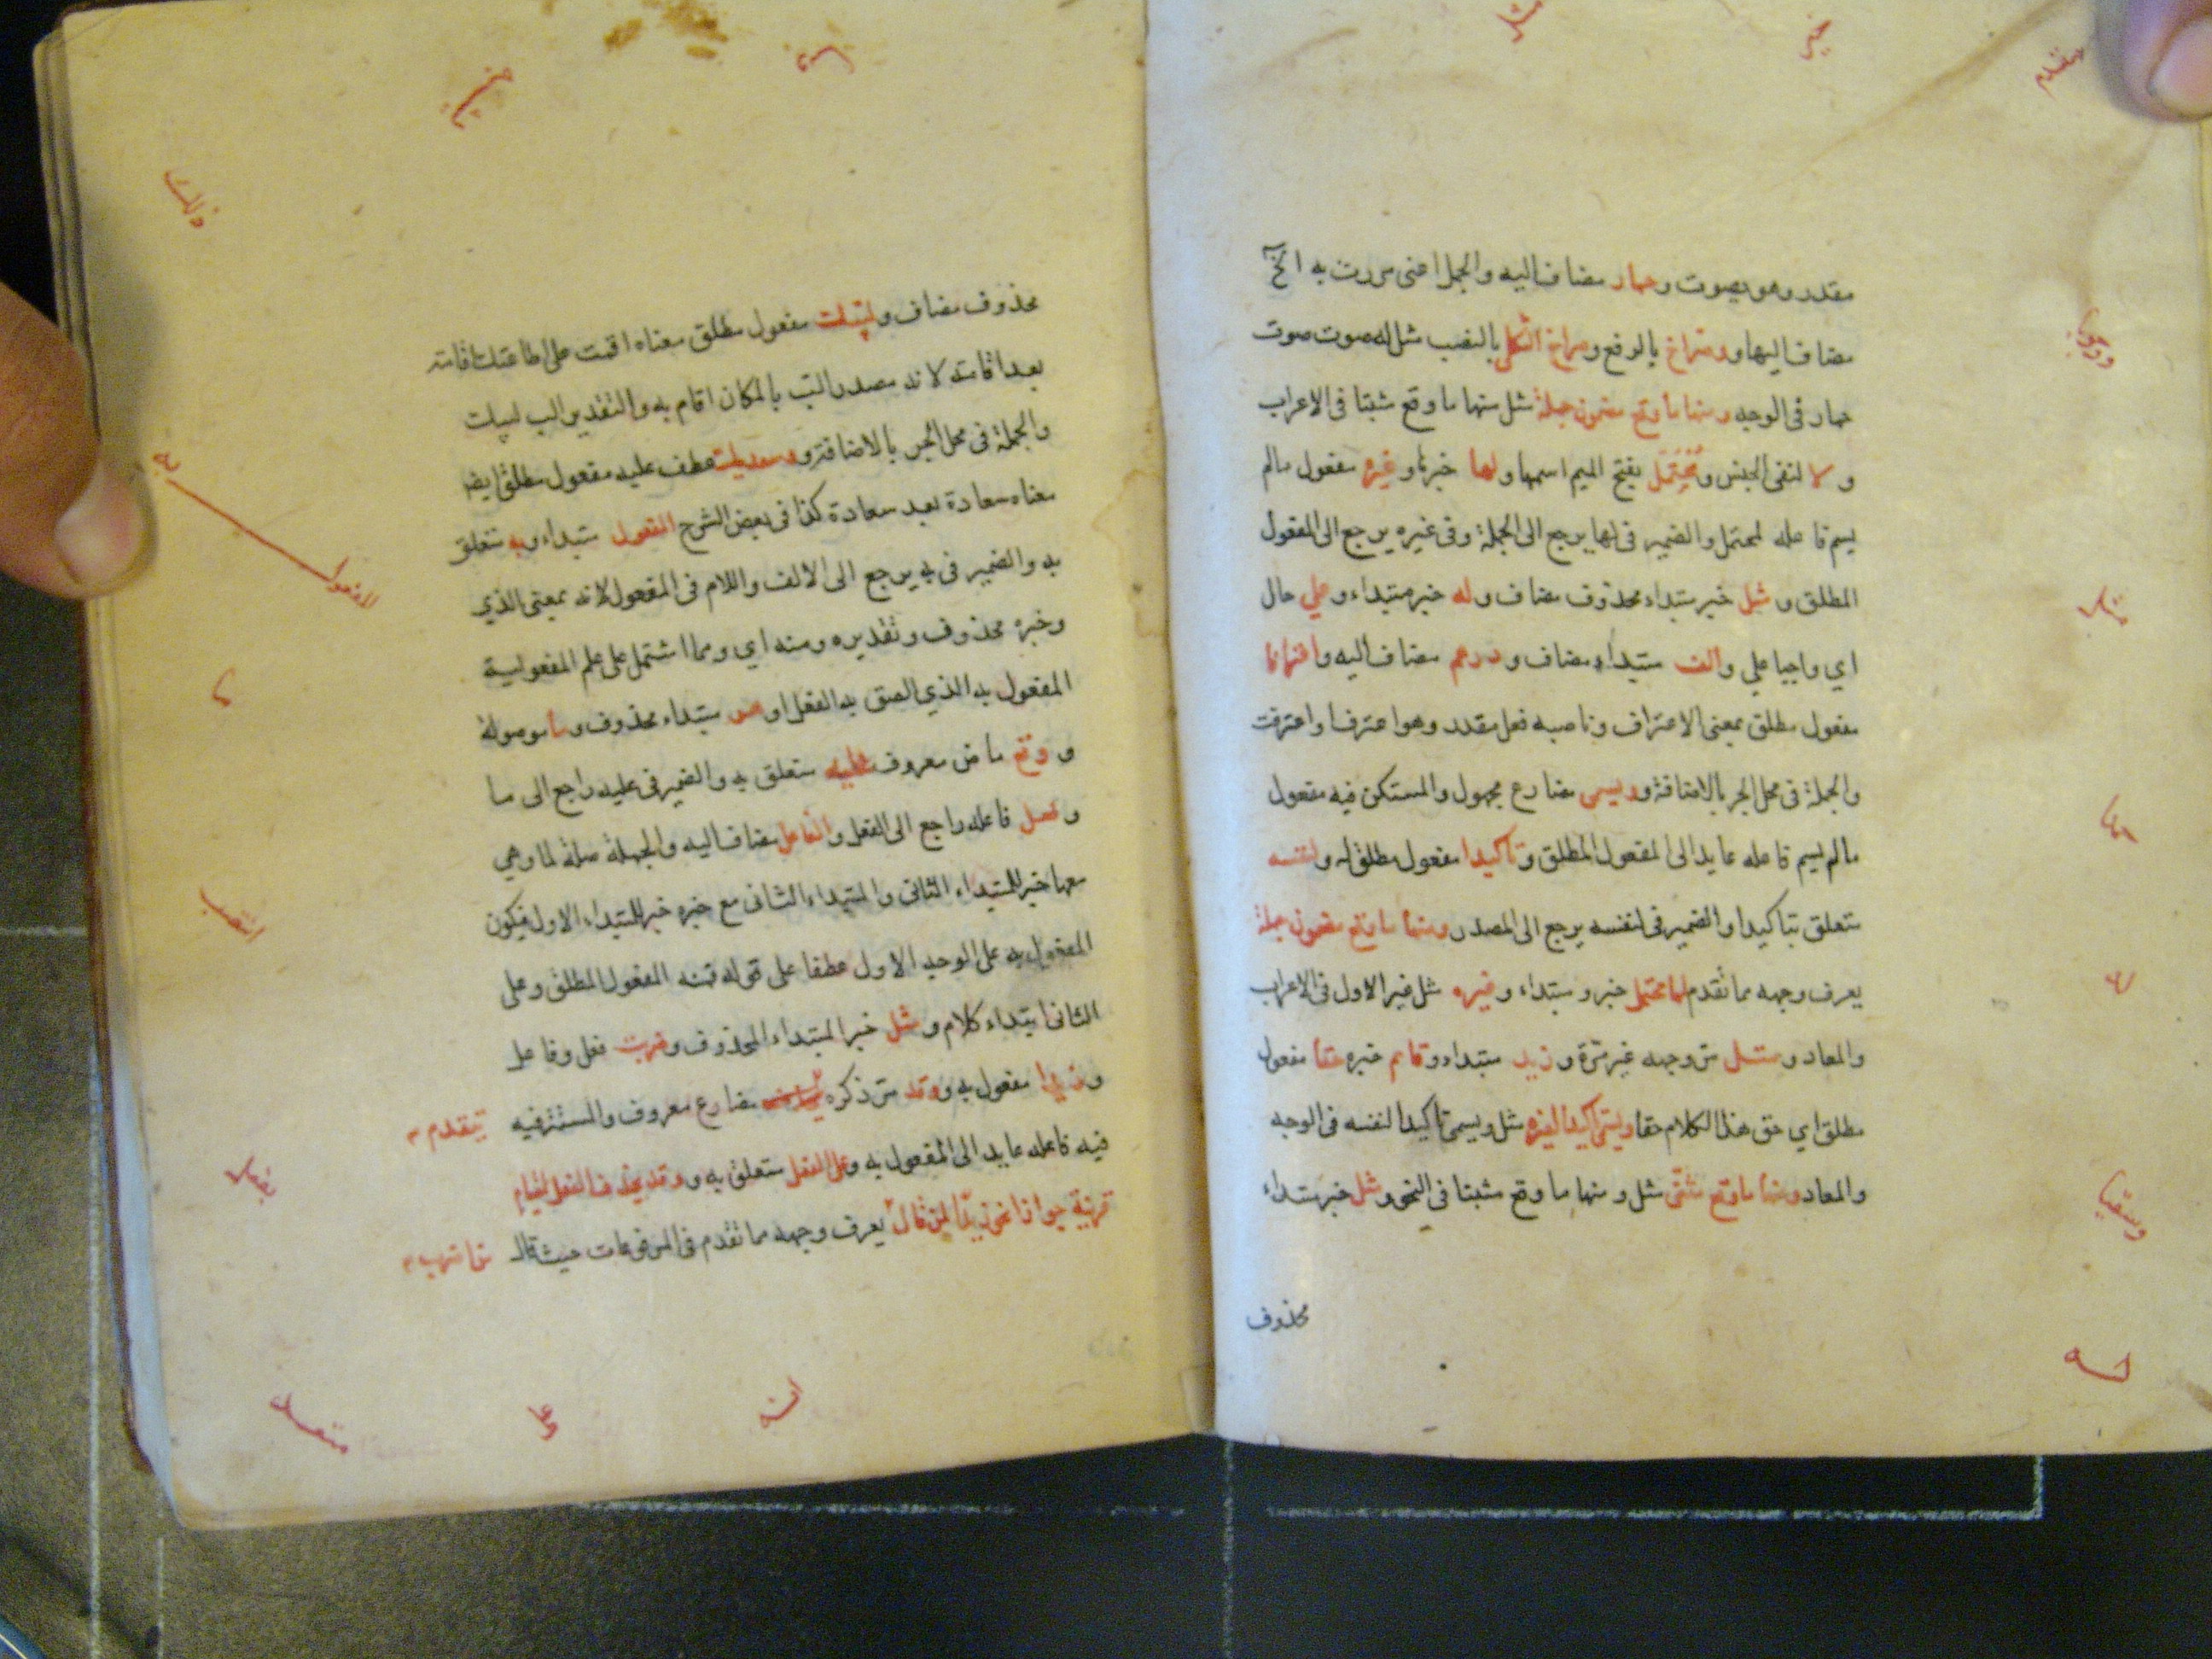 مقدر وهو يصوت وحمار مضاف اليه والجمل اعنى مررت به الخ
مضاف اليها وصراخ بالرفع وصراخ الثكلى بالنصب مثل له صوت صوت
حمار فى الوجه ومنها ما وقع مضمون جملة مثل منها ما وقع مثبتا فى الاعراب
و لا لنفى الجنس و محتمل بفتح الميم اسمها و لها خبرها و غيره مفعول مالم
يسم فاعله لمحتمل والضمير فى لها يرجع الى الجملة وفى غيره يرجع الى المفعول
المطلق و مثل خبر مبتداء محذوف مضاف و له خبر مبتداء و علي حال
اي واجبا علي و الف مبتداء مضاف و درهم مضاف اليه و اعترافا
مفعول مطلق بمعنى الاعتراف وناصبه فعل مقدر وهو اعترف او اعترفت
والجملة فى محل الجر بالاضافة و يسمى مضارع مجهول والمستكن فيه مفعول
مالم يسم فاعله عايد الى المفعول المطلق و تاكيدا مفعول مطلق له و لنفسه
متعلق بتاكيدا والضمير فى لنفسه يرجع الى المصدر ومنها ما وقع مضمون جملة
يعرف وجهه مما تقدم لها محتمل خبر و مبتداء و غيره مثل غير الاول فى الاعراب
والمعاد و مثل مر وجهه غير مرة و زيد مبتداء و قايم خبره حقا مفعول
مطلق اي حق هذا الكلام حقا ويسمى تاكيدا لغيره مثل ويسمى تاكيدا لنفسه فى الوجه
والمعاد ومنها ما وقع مثنى مثل ومنها ما وقع مثبتا فى النحو و مثل خبر مبتداء
محذوف
محذوف مضاف و لبيك مفعول مطلق معناه اقمت على اطاعتك اقامة
بعد اقامة لانه مصدر الب بالمكان اقام به والتقدير الب لبيك
والجملة فى محل الجر بالاضافة و سعديك عطف عليه مفعول مطلق ايضا
معناه سعادة بعد سعادة كذا فى بعض الشرح المفعول مبتداء و به متعلق
به والضمير فى به يرجع الى الالف واللام فى المفعول لانه بمعنى الذي
وخبره محذوف وتقديره ومنه اي ومما اشتمل على علم المفعولية
المفعول به الذي الصق به الفعل او هو مبتداء محذوف و ما موصولة
و وقع ماض معروف عليه متعلق به والضمير فى عليه راجع الى ما
و فعل فاعله راجع الى الفعل و الفاعل مضاف اليه والجملة صلة لما وهي
معها خبر للمبتداء الثانى والمبتداء الثانى مع خبره خبر للمبتداء الاول فيكون
المفعول به على الوجه الاول عطفا على قوله فمنه المفعول المطلق وعلى
الثانى ابتداء كلام و مثل خبر المبتداء المحذوف و ضربت فعل وفاعل
و زيدا مفعول به و وقد مر ذكره مضارع معروف والمستتر فيه يتقدم
فيه فاعله عايد الى المفعول به و على الفعل متعلق به و وقد يحذف الفعل لقيام
قرينة جوازا نحو زيدا لمن قال يعرف وجهه مما تقدم فى المرفوعات حيث قال من اضرب